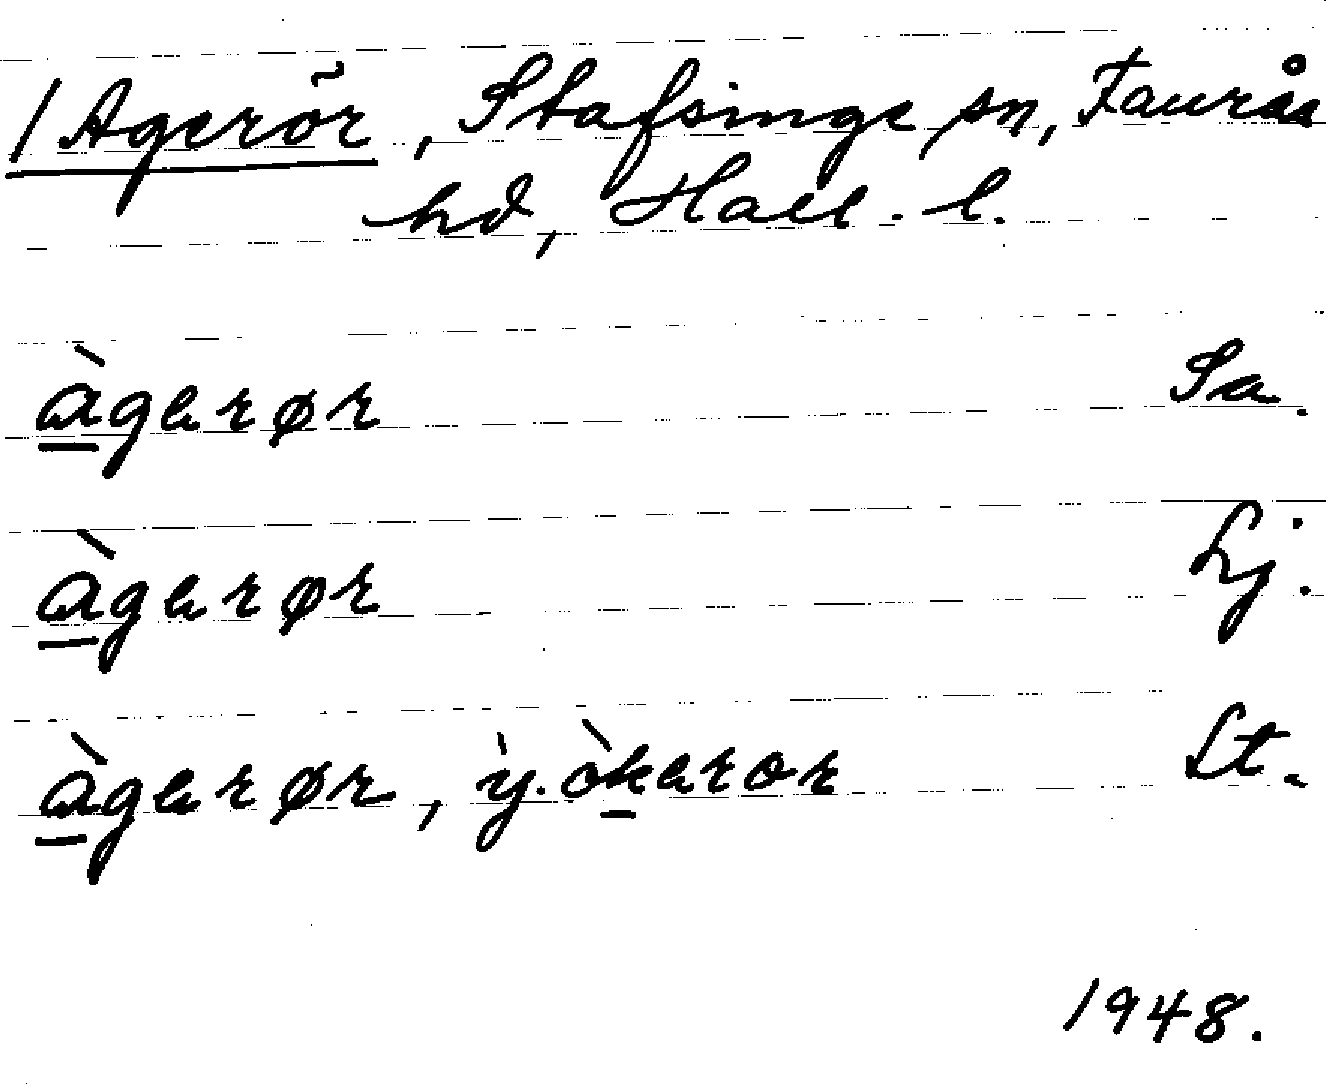 1 Agerör, Stafsinge sn, Faurås
hd, Hall. l.
àgerør Sa.
àgerør Lj.
àgerør, y. òkeror St.
1948.